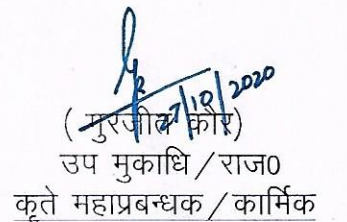 27/10/2020
( गुरजीत कौर)
उप मुकाधि / राज0
कृते महाप्रबन्धक / कार्मिक